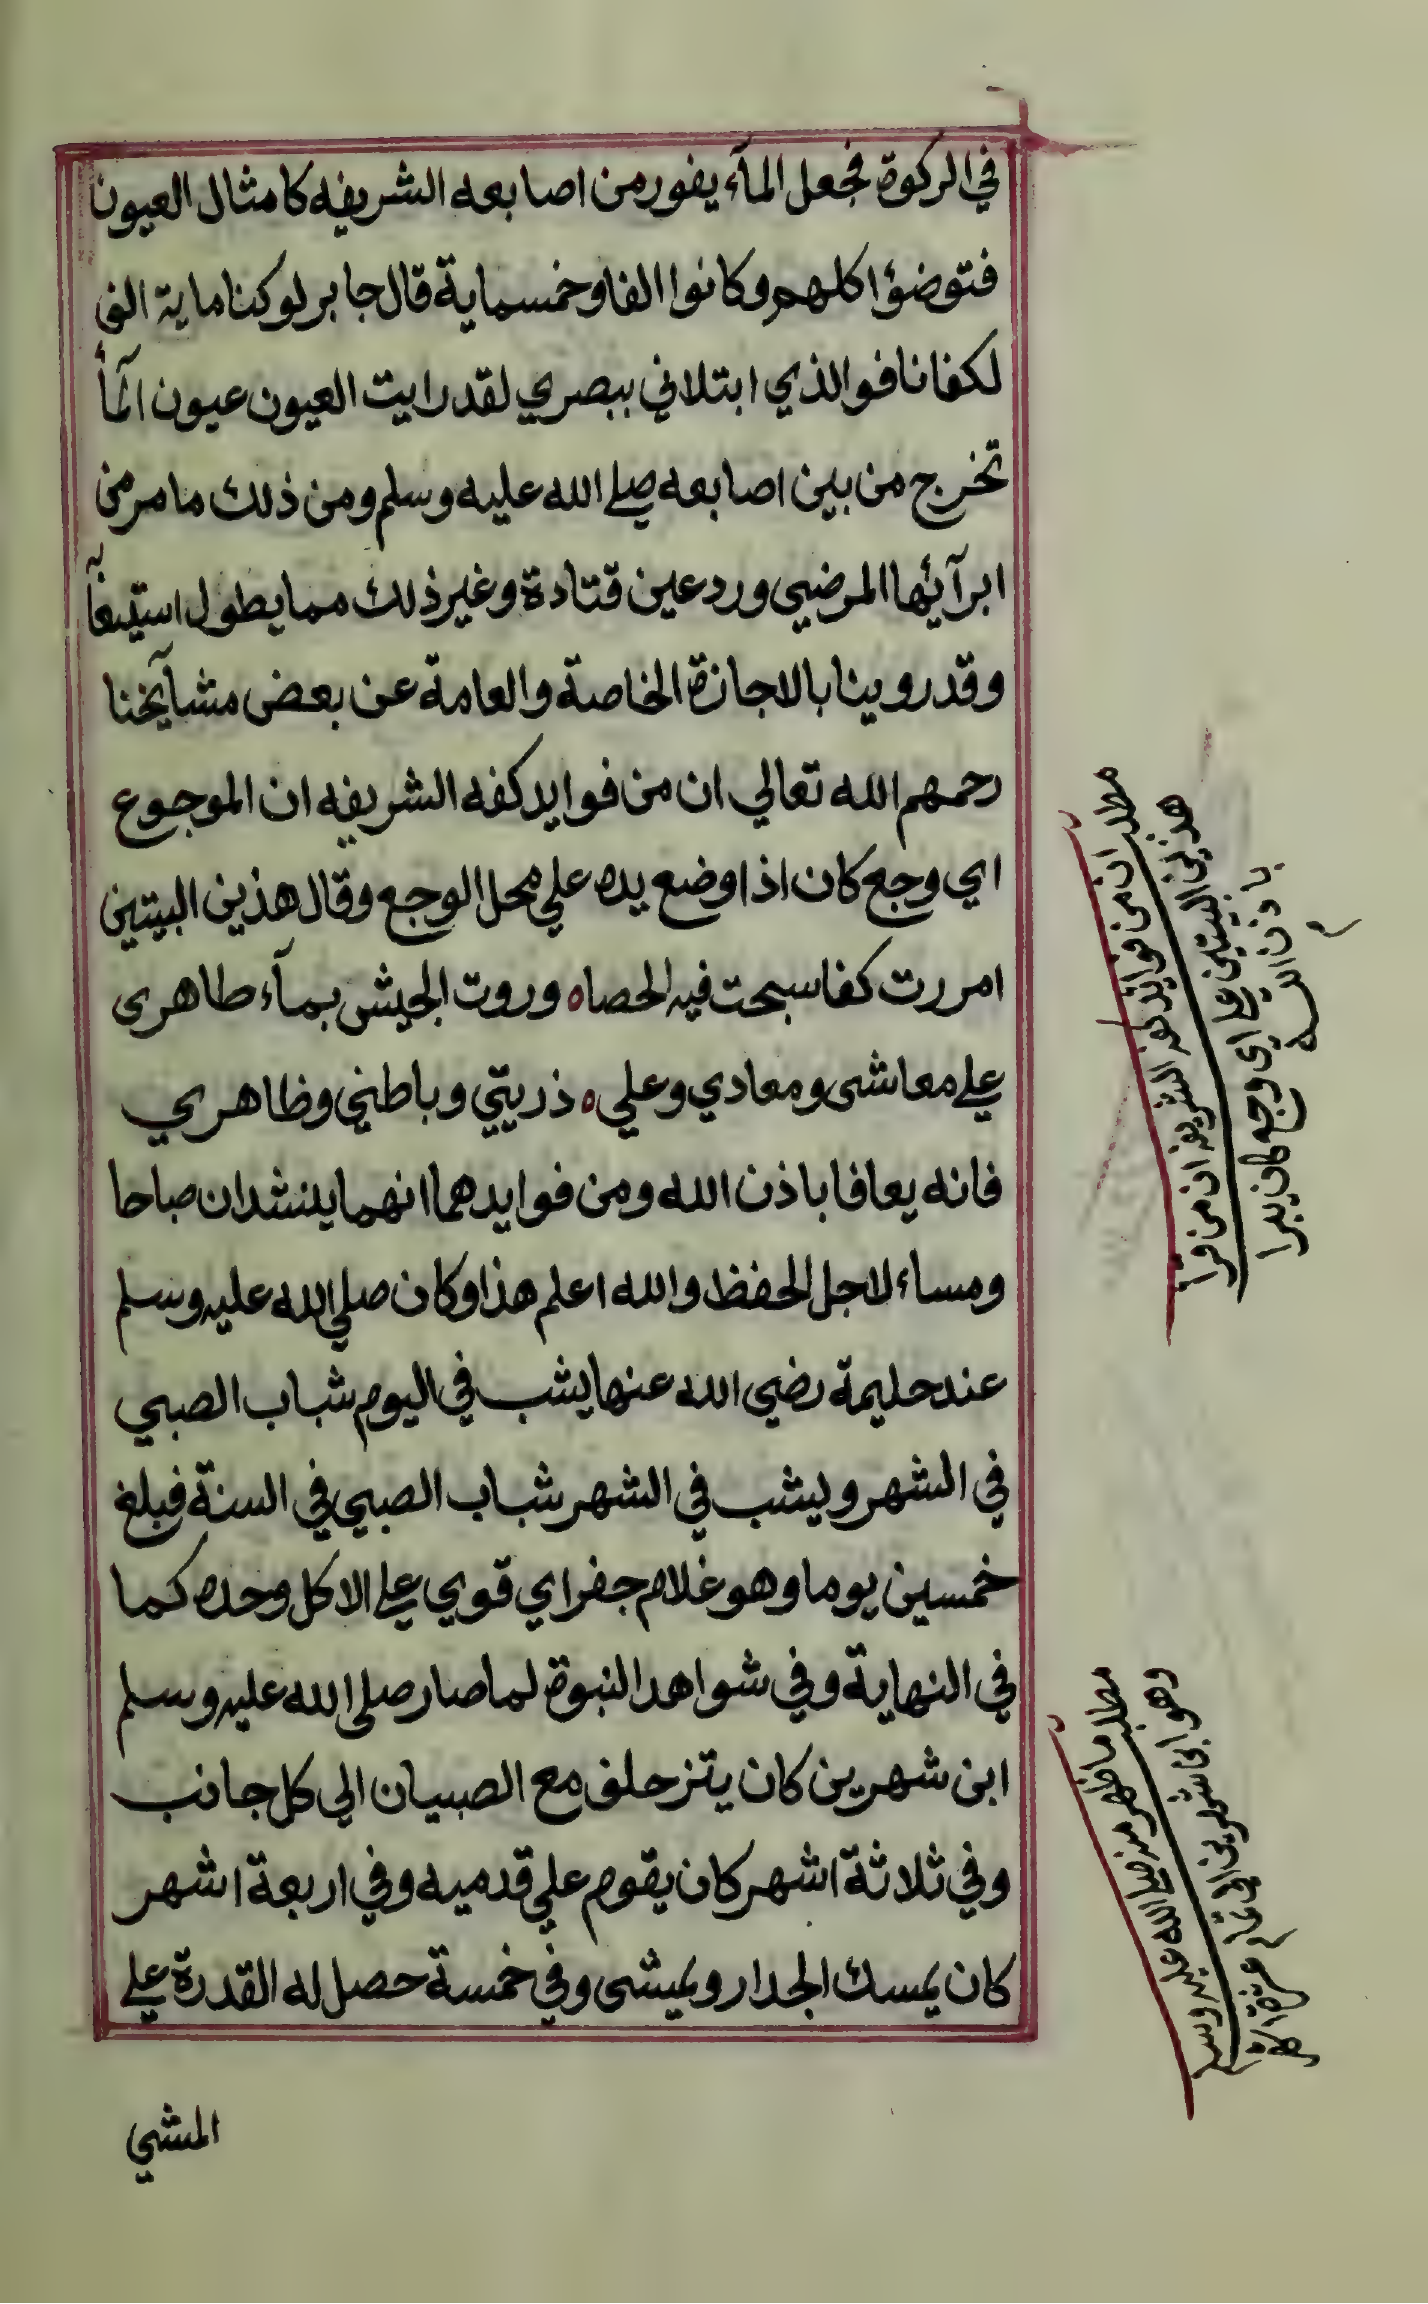 في الركوة فجعل المآء يفور من اصابعه الشريفه كامثال العيون
فتوضؤا كلهم وكانوا الفا وخمسماية قال جابر لو كنا ماية الف
لكفانا فوالذي ابتلاني ببصري لقد رايت العيون عيون المآء
تخرج من بين اصابعه صلى الله عليه وسلم ومن ذلك ما مر من
ابرآئها المرضي ورد عين قتادة وغير ذلك مما يطول
وقد روينا بالاجازة الخاصة والعامة عن بعض مشآيخنا
رحمهم الله تعالي ان من فوايد كفه الشريفه ان الموجوع
اي وجع كان اذا وضع يده علي محل الوجع وقال هذين البيتين
امررت كفا سبحت فيه الحصاه وروت الجيش بمآء طاهري
علي معاشى ومعادي وعلي ه ذريتي وباطني وظاهري
فانه يعافا باذن الله ومن فوايدهما انهما ينشدان صباحا
ومساء لاجل الحفظ والله اعلم هذا وكان صلي الله عليه وسلم
عند حليمة رضي الله عنها يشب في اليوم شباب الصبي
في الشهر ويشب في الشهر شباب الصبي في السنة فبلغ
خمسين يوما وهو غلام جفر اي قوي علي الاكل وحده كما
في النهاية وفي شواهد النبوة لما صار صلى الله عليه وسلم
ابن شهرين كان يتزحلف مع الصبيان الي كل جانب
وفي ثلاثة اشهر كان يقوم علي قدميه وفي اربعة اشهر
كان يمسك الجدار ويمشى وفي خمسة حصل له القدرة علي
المشي
مطلب ان من فوائد كفه الشريفه ان من قرأ
هذين البيتين علي اي وجع كان يبرا
باذن الله
مطلب ما ظهر منه صلى الله عليه وسلم
وهو ابن